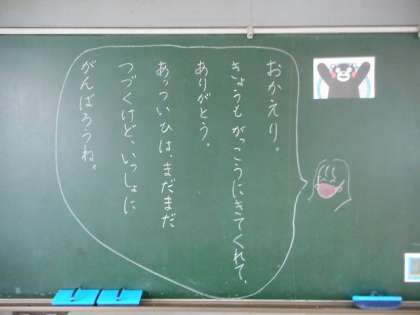 おかえり。
きょうもがっこうにきてくれて、
ありがとう。
あっついひは、まだまだ
つづくけど、いっしょに
がんばろうね。